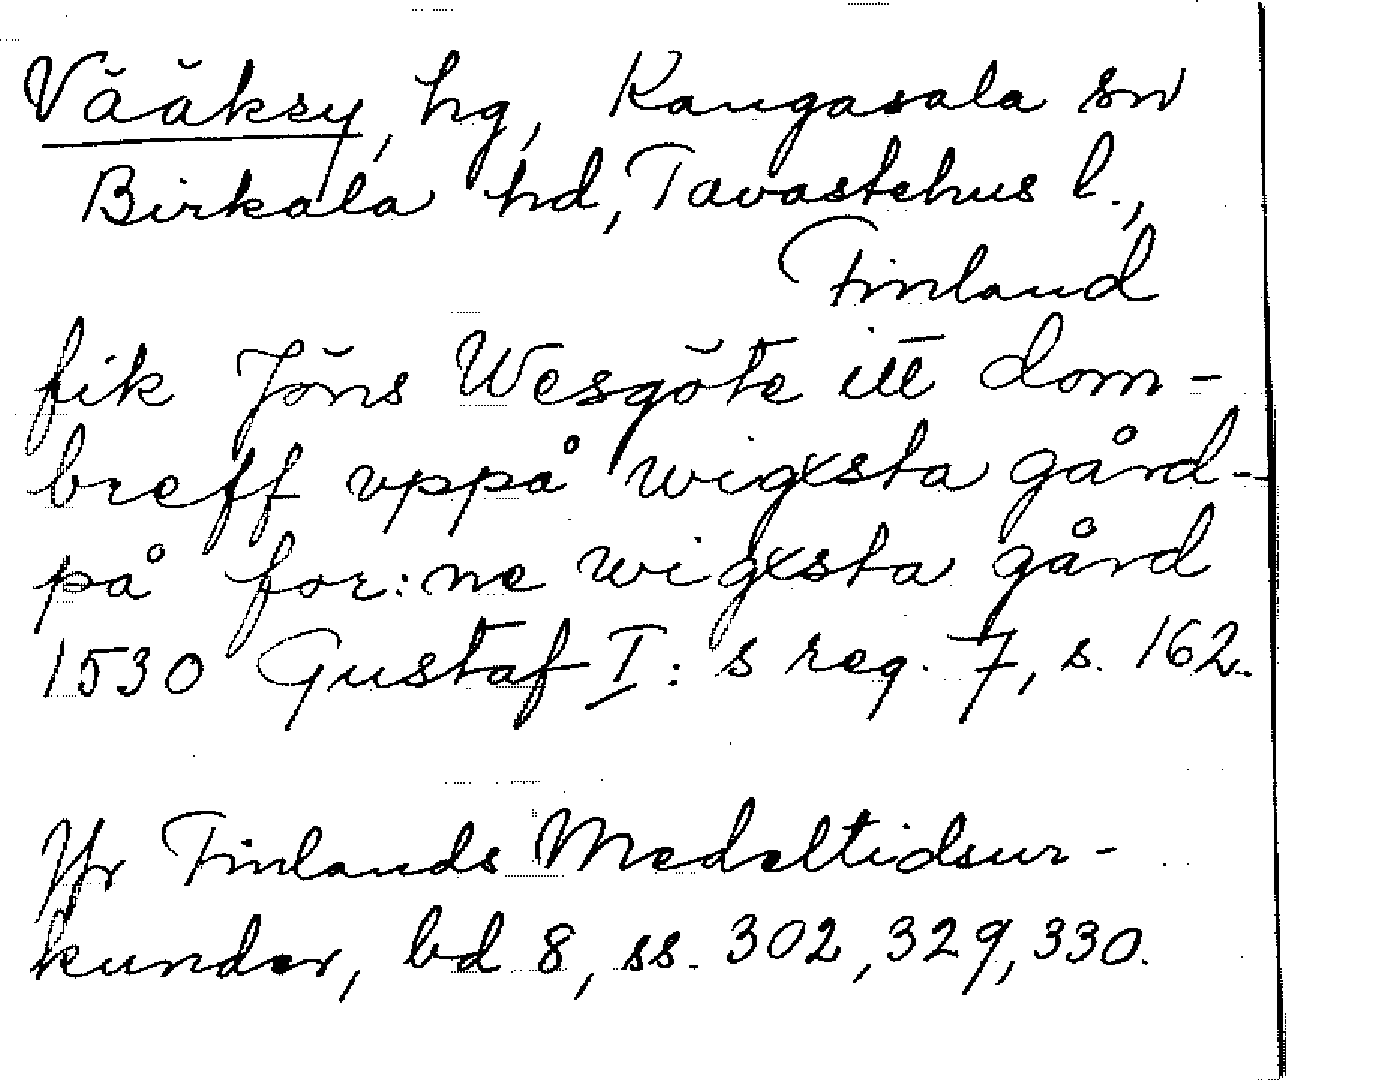 Vääksy, hg, Kangasala sn
Birkala hd, Tavastehus l.,
Finland
fik Jöns Wesgöte itt dom-
breff vppå wigxsta gård-
på for:ne wigxsta gård
1530 Gustaf I:s reg. 7, s. 162.
Jfr Finlands Medeltidsur-
kunder, bd 8, ss. 302, 329, 330.